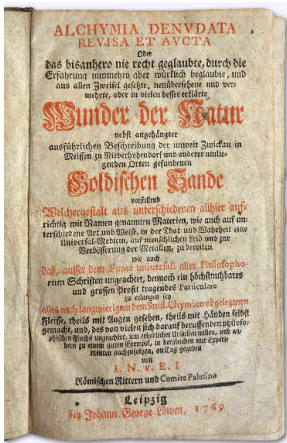 ALCHYMIA DENVDATA
REVISA ET AVCTA
Oder
das bisanhero nie recht geglaubte, durch die
Erfahrung nunmehro aber würklich beglaubte, und
aus allen Zweifel gesetzte, neuübersehene und ver-
mehrte, aber in vielen besser erklärte
Wunder der Natur
nebst angehängter
ausführlichen Beschreibung der unweit Zwickau in
Meissen zu Niederhohendorf und anderer umlie-
genden Orten gefundenen
Goldischen Sande
vorstellend
Welchergestalt aus unterschiedenen allhier auf-
richtig mit Namen genannten Materien, wie auch auf un-
terschiedene Art und Weise, in der That und Wahrheit eine
Universal-Medicin, auf menschlichen Leib und zur
Verbesserung der Metallen, zu bereiten
wie auch
daß, ausser dem Punct universali aller Philosopho-
rum Schriften ungeachtet, dennoch ein höchstnutzbares
und grossen Profit tragendes Particulare
zu erlangen sey
alles nach langwierigem dem Studio Chymico obgelegenen
Fleisse, theils mit Augen gesehen, theils mit Händen selbst
gemacht, und, des von vielen sich darauf beruffenden
ungeachtet, um erheblicher Ursachen willen, und an-
dern zu einem guten Exempel, in dergleichen mit
nachzufolgen, an Tag gegeben
von
I. N. v. E. I
Römischen Rittern und Comite Palatino
Leipzig
bey Johann George Löwen, 1769